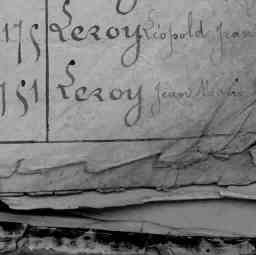 175 Leroy Léopold Jean
751 Leroy Jean Marie